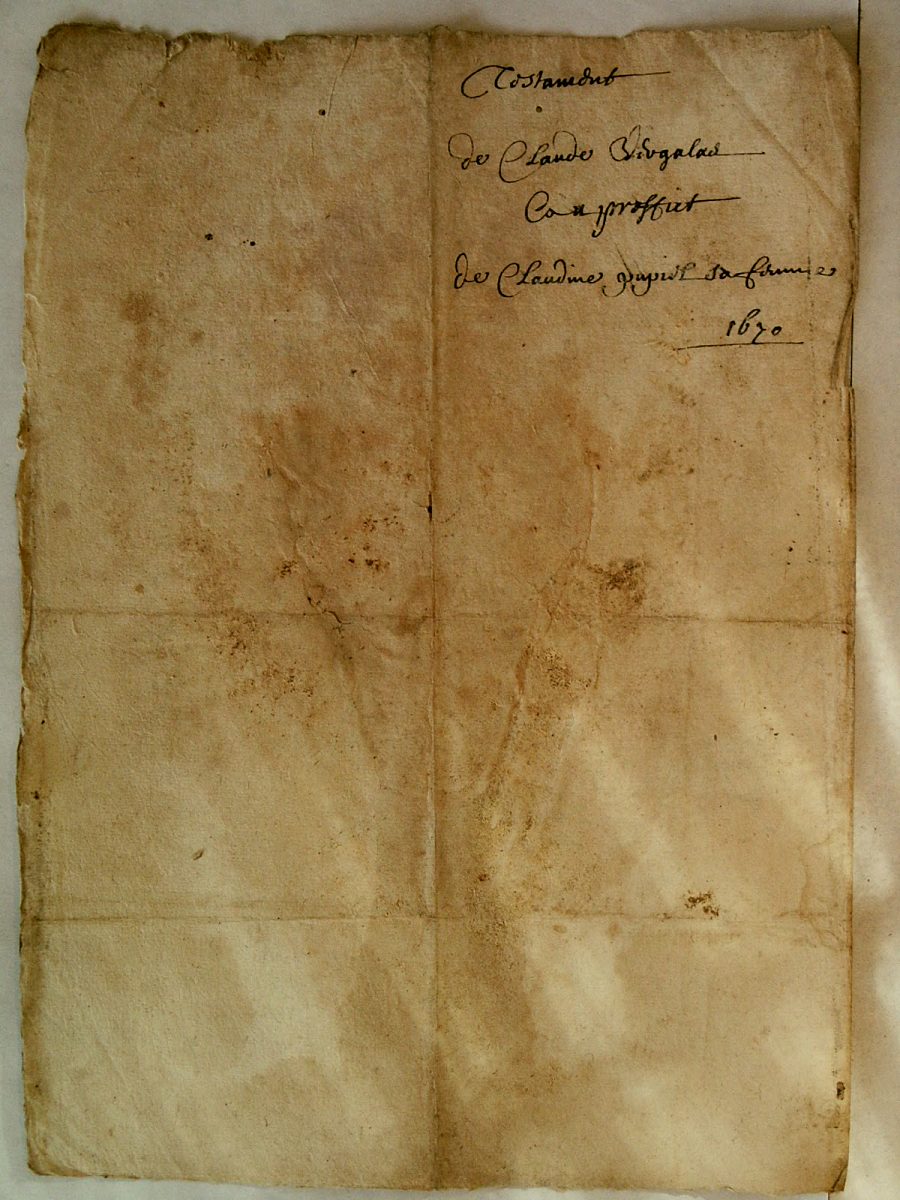 Testament
de Claude Virgalas
Co a proffict
de Claudine pupiel sa femme
1670